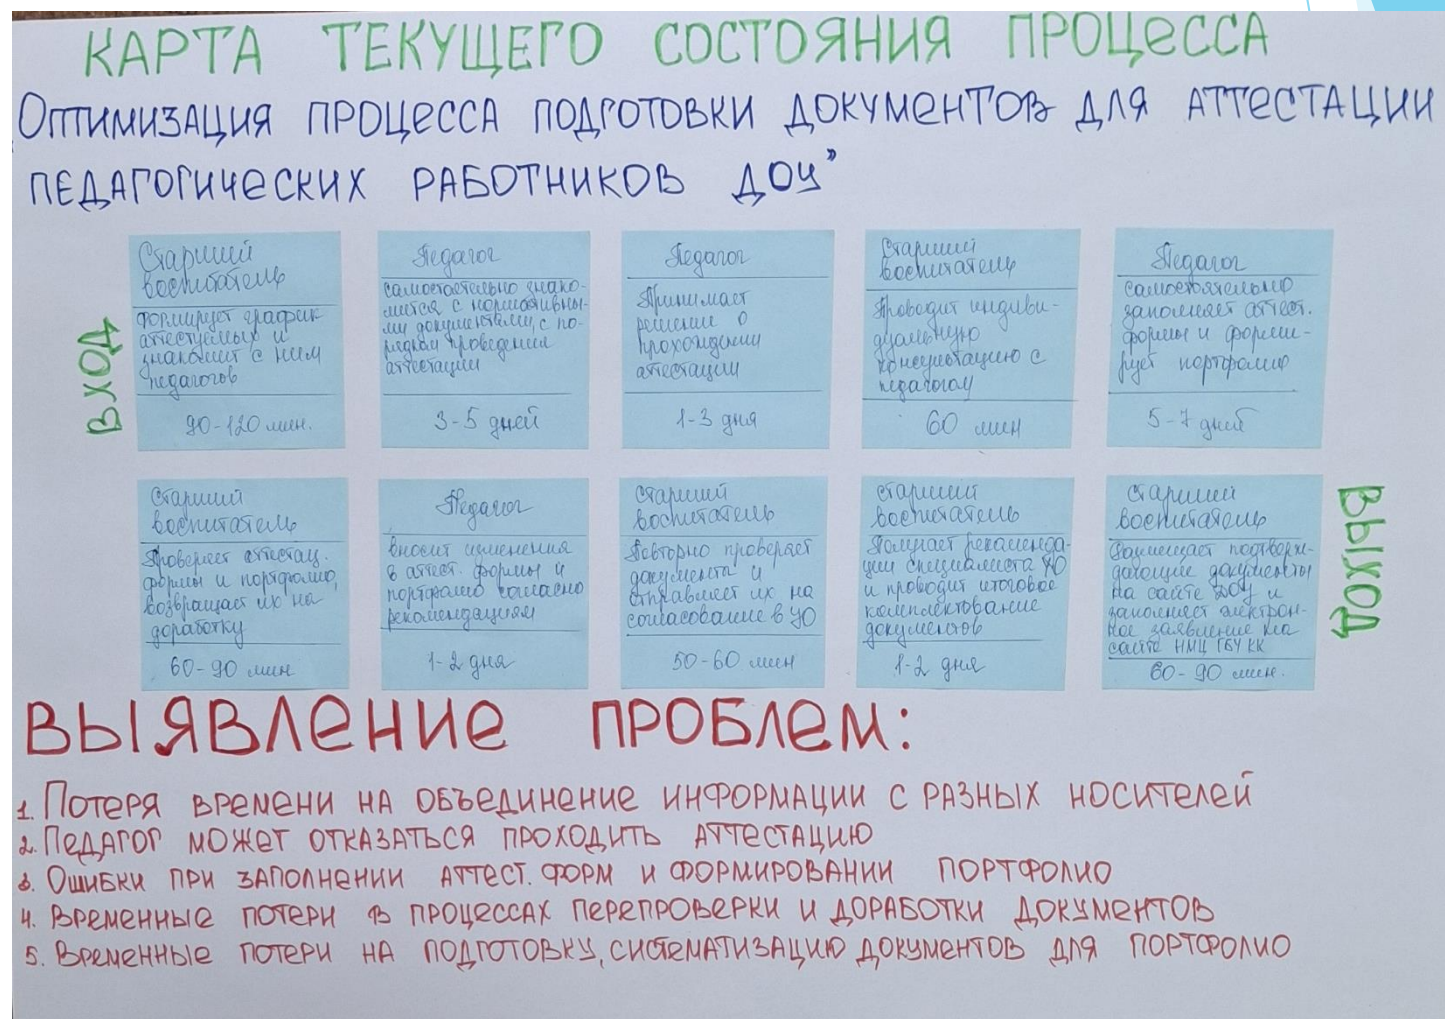 КАРТА ТЕКУЩЕГО СОСТОЯНИЯ ПРОЦЕССА
Оптимизация процесса подготовки документов для аттестации
педагогических работников ДОУ"
ВХОД
Старший
воспитатель
формирует график
аттестуемых и
знакомит с ним
педагогов
90-120 мин.
Педагог
самостоятельно знако-
мится с нормативны-
ми документами, с по-
рядком проведения
аттестации
3-5 дней
Педагог
Принимает
решение о
прохождении
аттестации
1-3 дня
Старший
воспитатель
Проводит индиви-
дуальную
консультацию с
педагогом
60 мин
Педагог
самостоятельно
заполняет аттест.
формы и форми-
рует портфолио
5-7 дней
Старший
воспитатель
Проверяет аттестац.
формы и портфолио,
возвращает их на
доработку
60-90 мин
Педагог
вносит изменения
в аттест. формы и
портфолио согласно
рекомендациям
1-2 дня
Старший
воспитатель
Повторно проверяет
документы и
отправляет их на
согласование в УО
50-60 мин
старший
воспитатель
Получает рекоменда-
ции специалиста УО
и проводит итоговое
комплектование
документов
1-2 дня
Старший
воспитатель
Размещает подтверж-
дающие документы
на сайте ДОУ и
заполняет электрон-
ное заявление на
сайте НМЦ ГБУ КК
60-90 мин.
ВЫХОД
ВЫЯВЛЕНИЕ ПРОБЛЕМ:
1. Потеря времени на объединение информации с разных носителей
2. Педагог может отказаться проходить аттестацию
3. Ошибки при заполнении аттест. форм и формировании портфолио
4. Временные потери в процессах перепроверки и доработки документов
5. Временные потери на подготовку, систематизацию документов для портфолио